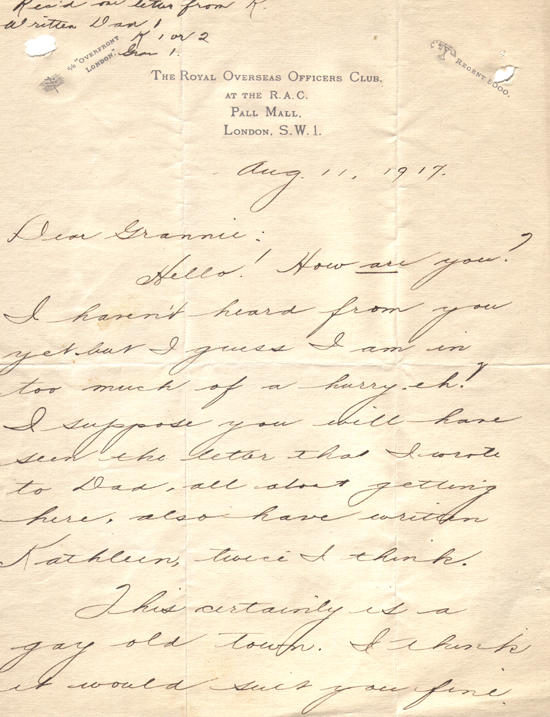 Rec'd one letter from K.
Written Dan 1
K 1 or 2
Gran 1.
c/o "OVERFRONT
LONDON."
REGENT 5000.
THE ROYAL OVERSEAS OFFICERS CLUB.
AT THE R.A.C.
PALL MALL,
LONDON, S.W.1.
Aug. 11, 1917.
Dear Grannie:
Hello! How are you?
I haven't heard from you
yet but I guess I am in
too much of a hurry, eh?
I suppose you will have
seen the letter that I wrote
to Dad, all about getting
here, also have written
Kathleen, twice I think.
This certainly is a
gay old town. I think
it would suit you fine.